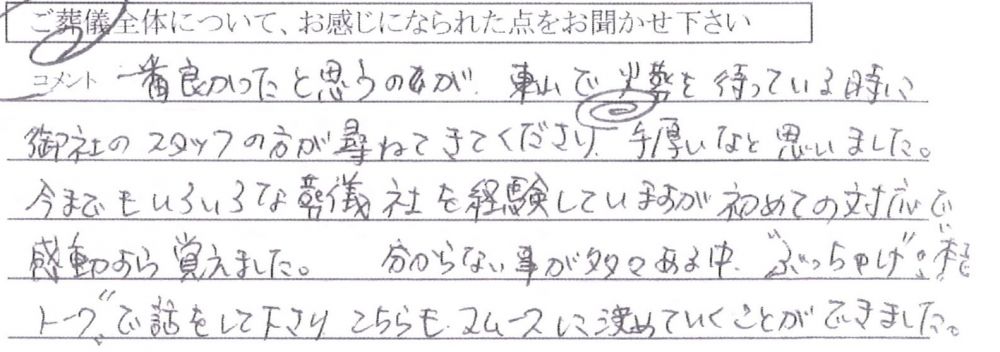 ご葬儀全体について、お感じになられた点をお聞かせ下さい
コメント 一番良かったと思うのが、東山で火葬を待っている時に
御社のスタッフの方が尋ねてきてくださり、手厚いなと思いました。
今までもいろいろな葬儀社を経験していますが初めての対応で
感動すら覚えました。 分からない事が多々ある中、"ぶっちゃけ"
トーク"で話をして下さり こちらも スムースに決めていくことができました。